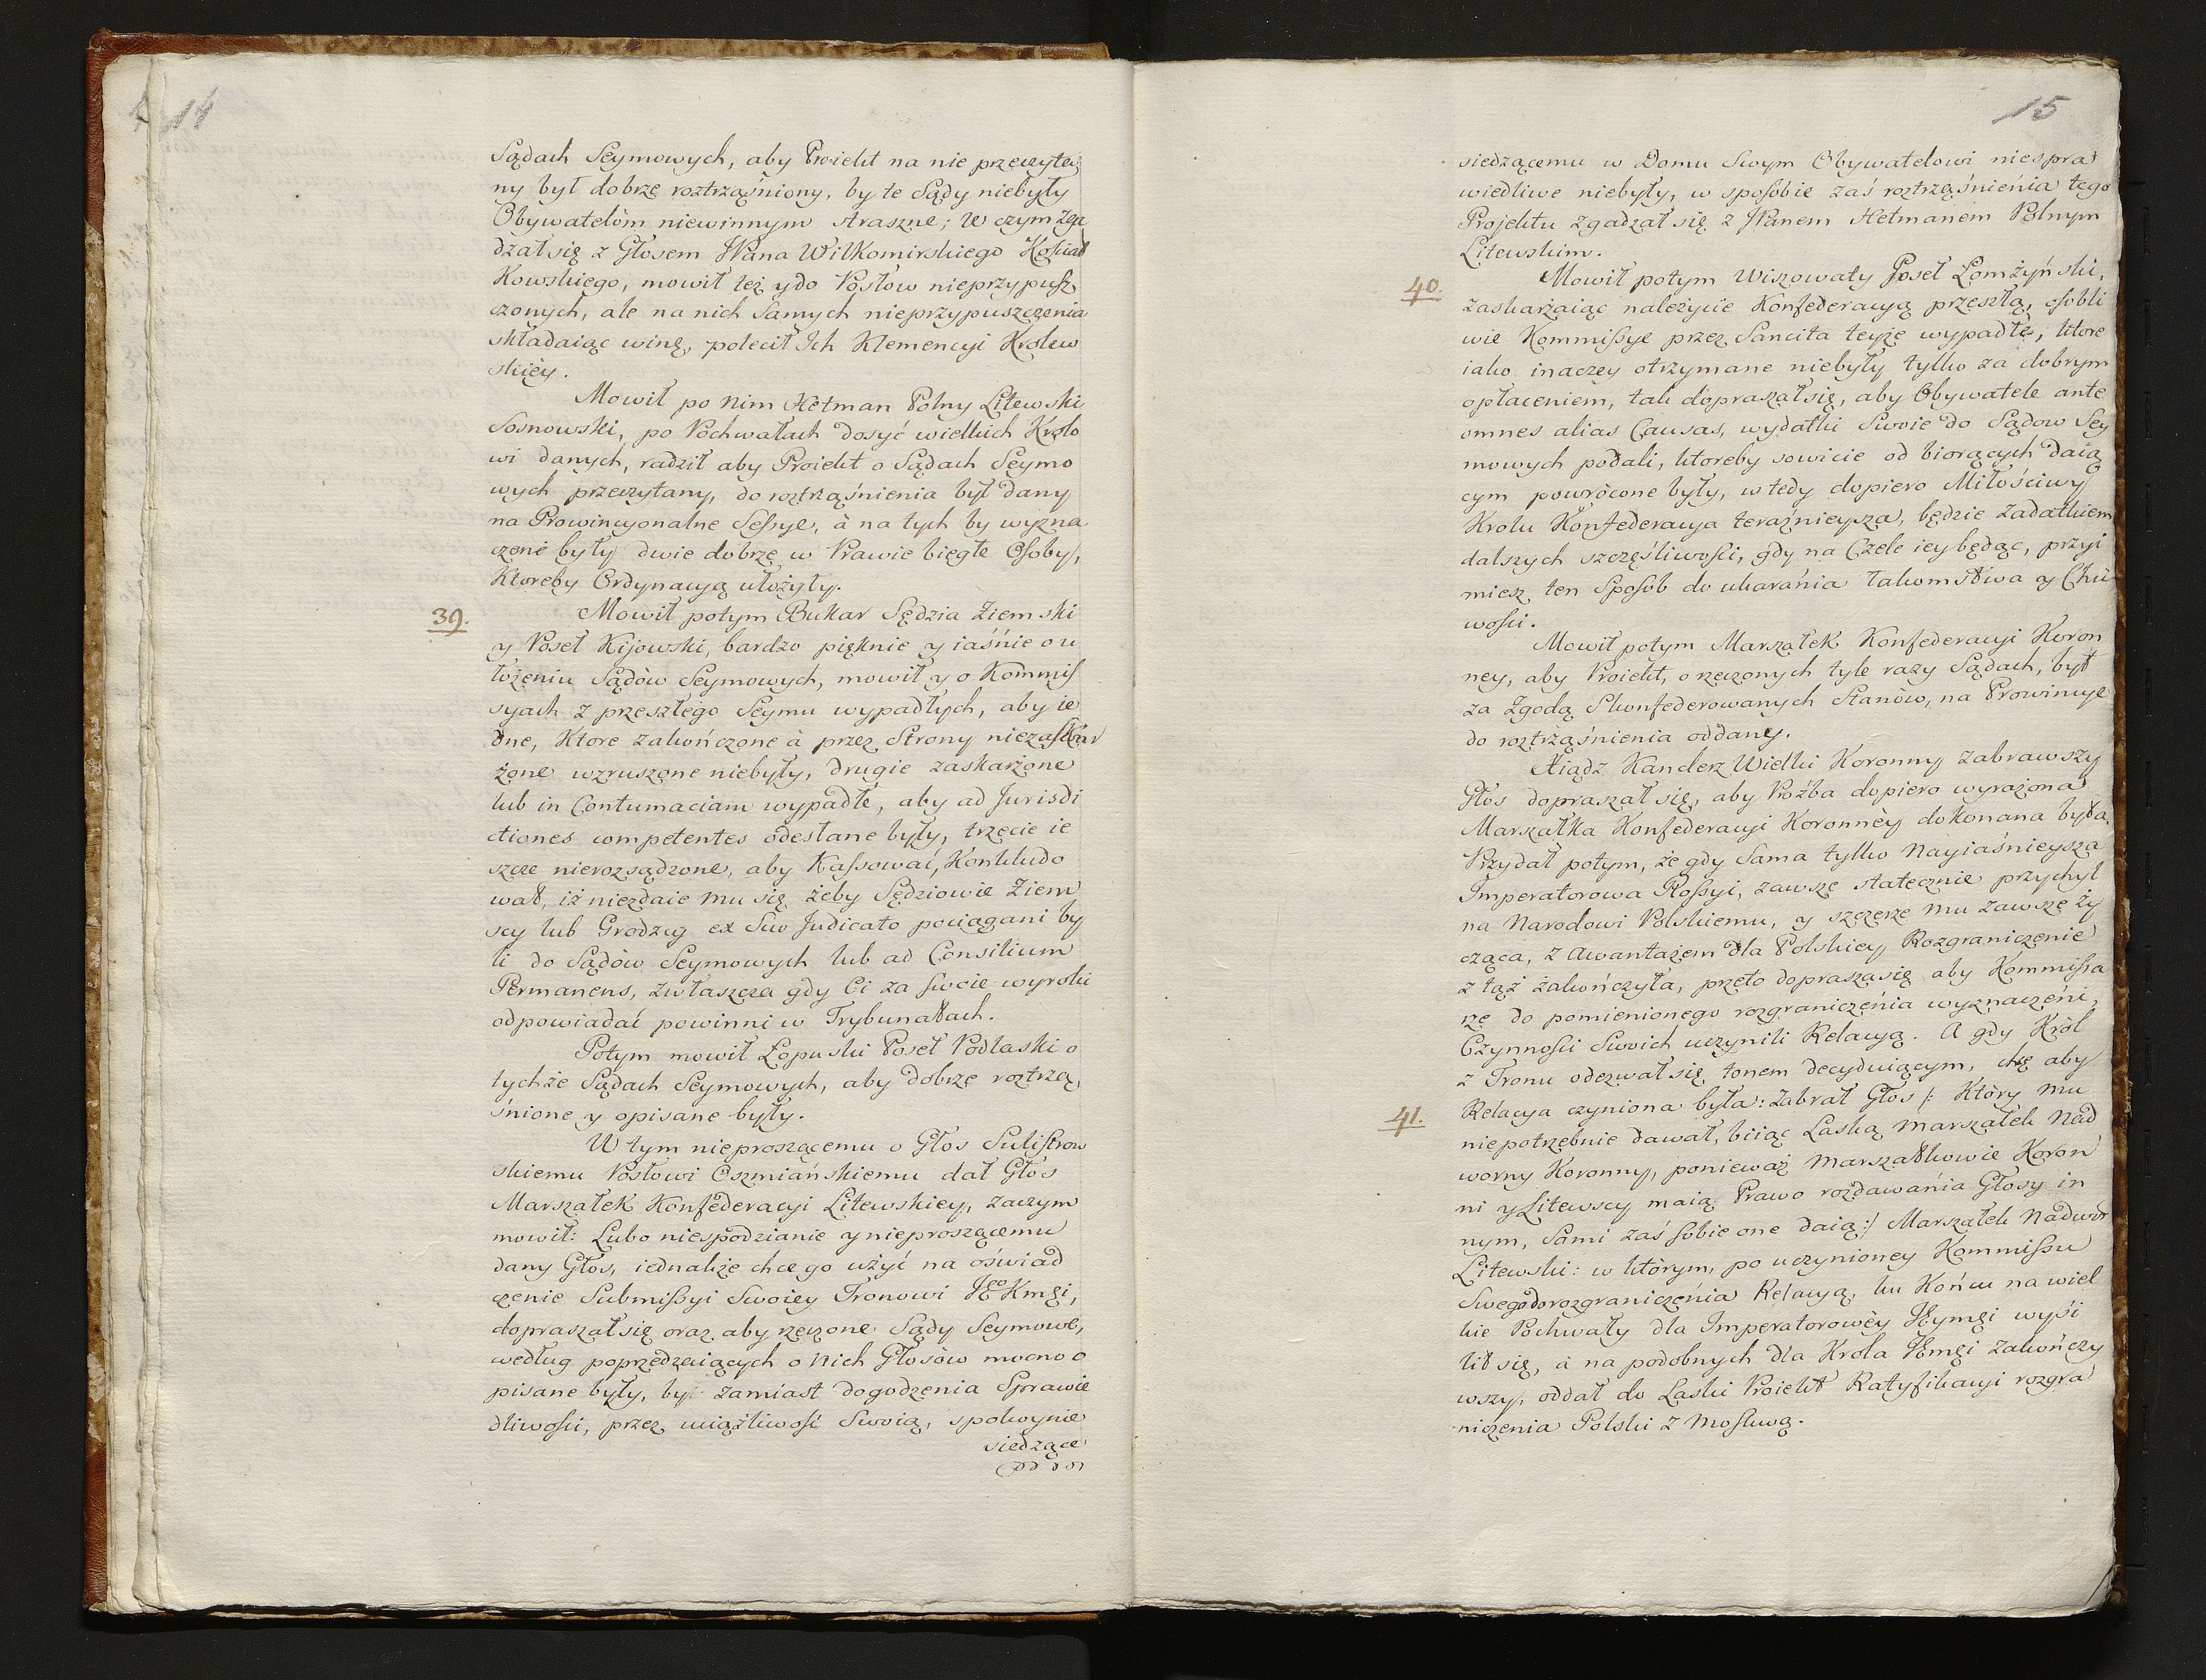 14
Sądach Seymowych, aby Proiekt na nie przeczyta
ny był dobrze roztrząśniony, by te Sądy niebyły
Obywatelòm niewinnym straszne; w czym zga
dzał się z Głosem JPana Wiłkomirskiego Kościał
Kowskiego, mowił też y do Posłòw nieprzypusz
czonych, ale na nich Samych nieprzypuszczenia
składaiąc winę, polecił Ich Klemencyi Krolew
skiéy.
Mowił po nim Hetman Polny Litewski
Sosnowski, po Pochwałach dosyć wielkich Krolo
wi danych, radził aby Proiekt o Sądach Seymo
wych przeczytany, do roztrząśnienia był dany
na Prowincyonalne Sessye, à na tych by wyzna
czoné były dwie dobrze w Prawie biegłe Osoby,
Ktoreby Ordynacyą ułożyły.
39.
Mowił potym Bukar Sędzia Ziemski
y Poseł Kijowski, bardzo pięknie y iaśnie o u
łożeniu Sądòw Seymowych, mowił y o Kommis
syach z przeszłego Seymu wypadłych, aby ie
dne, Ktore zakończone à przez Strony niezaskar
żone wzruszone niebyły, drugie zaskarżone
lub in Contumaciam wypadłé, aby ad Jurisdi
ctiones competentes odesłane były, trzecie ie
szcze nierozsądzone, aby Kassować, Konkludo
wał, iż niezdaie mu się żeby Sędziowie Ziem
scy lub Grodzcy ex Suo Judicato pociągani by
li do Sądòw Seymowych lub ad Consilium
Permanens, zwłaszcza gdy Ci za swoie wyroki
odpowiadać powinni w Trybunałach.
Potym mowił Łopuski Poseł Podlaski o
tychże Sądach Seymowych, aby dobrze roztrzą
śnione y opisane były.
W tym nieproszącemu o Głos Sulistrow
skiemu Posłowi Oszmiańskiemu dał Głos
Marszałek Konfederacyi Litewskiey, zaczym
mowił: Lubo niespodzianie y nieproszącemu
dany Głos, iednakże chcę go użyć na oświad
czenie Submissyi Swoiey Tronowi JEgo Kmści,
dopraszał się oraz aby rzeczone Sądy Seymowe,
według poprzedzaiących o nich Głosòw mocno o
pisane były, by zamiast dogodzenia Sprawie
dliwości, przez uciążliwość Swoią, spokoynie
siedzące
15
siedzącemu w Domu Swym Obywatelowi niespra
wiedliwe niebyły, w sposobie zaś roztrząśnienia tego
Projektu zgadzał się z JPanem Hetmanem Polnym
Litewskim.
40.
Mowił potym Wiszowaty Poseł Łomżyński,
zaskarżaiąc należycie Konfederacyą przeszłą, osobli
wie Kommissye przez Sancita teyże wypadłe, ktore
iako inaczey otrzymane niebyły tylko za dobrym
opłaceniem, tak dopraszał się, aby Obywatele ante
omnes alias Causas, wydatki Swoie do Sądow Sey
mowych podali, ktoreby sowicie od biorących daią
cym powròcone były, wtedy dopiero Miłościwy
Krolu Konfederacya teraźnieysza, będzie zadatkiem
dalszych szczęśliwości, gdy na Czele iey będąc, przyi
miesz ten Sposób do ukarania łakomstwa y Chci
wości.
Mowił potym Marszałek Konfederacyi Koron
ney, aby Proiekt, o rzeczonych tyle razy Sądach, był
za Zgodą Skonfederowanych Stanòw, na Prowincye
do roztrząśnienia oddany.
Xiądz Kanclerz Wielki Koronny zabrawszy
Głos dopraszał się, aby Proźba dopiero wyrażona
Marszałka Konfederacyi Koronnéy dokonana była.
Przydał potym, że gdy Sama tylko Nayiaśnieysza
Imperatorowa Rossyi, zawsze statecznie przychyl
na Narodowi Polskiemu, y szczerze mu zawsze ży
cząca, z awantażem dla Polskiey Rozgraniczenie
z tąż zakończyła, przeto doprasza się aby Kommissa
rze do pomienionego rozgraniczenia wyznaczeni,
Czynności Swoich uczynili Relacyą. A gdy Kròl
z Tronu odezwał się tonem decyduiącym, chcę aby
41.
Relacya czyniona była: zabrał Głos /: Ktòry mu
niepotrzebnie dawał, biiąc Laską Marszałek Nad
worny Koronny, ponieważ Marszałkowie Koron
ni y Litewscy maią Prawo rozdawania Głosy in
nym, Sami zaś sobie one daią :/ Marszałek Nadwor
Litewski: w ktòrym, po uczynioney Kommissu
Swego do rozgraniczenia Relacyą, ku Końcu na wiel
kie Pochwały dla Imperatorowéy Jeymści wysi
lił się, à na podobnych dla Krola JEmści zakończy
wszy, oddał do Laski Proiekt Ratyfikacyi rozgra
niczenia Polski z Moskwą.